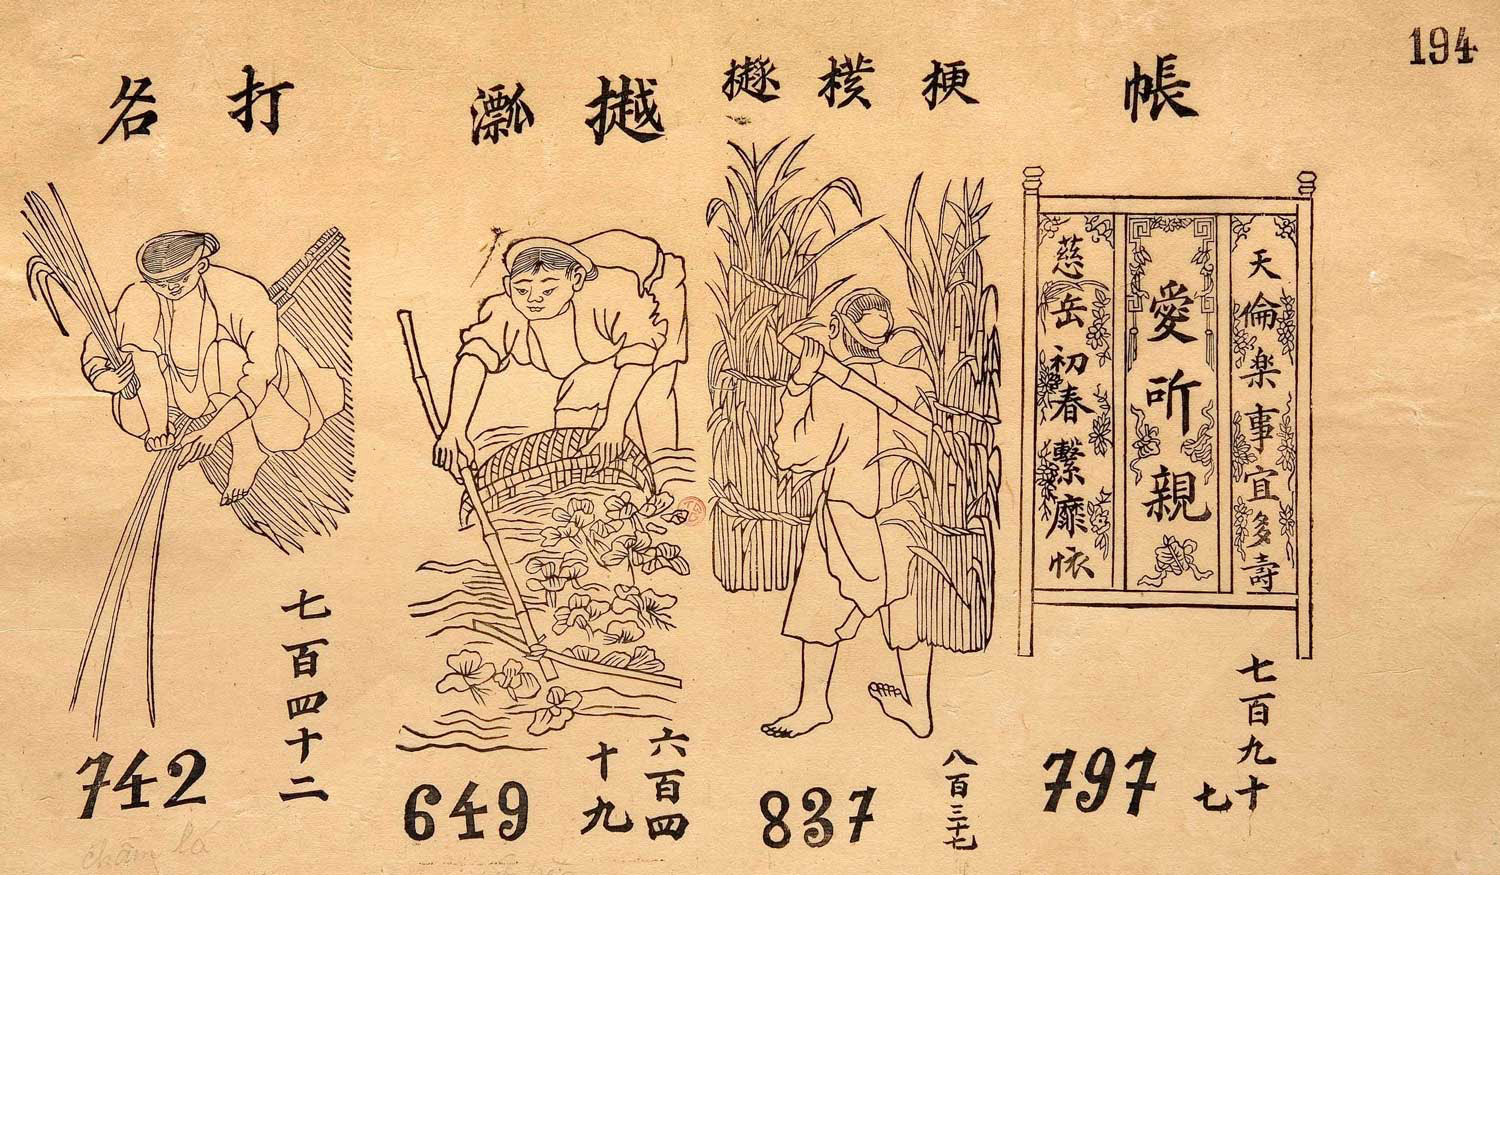 194
打
742
七百四十二
649
六百四
十九
梗
837
八百三十七
帳
天倫楽事宜多壽
愛所親
慈岳初春繫靡依
797
七百九十
七
chằm lá